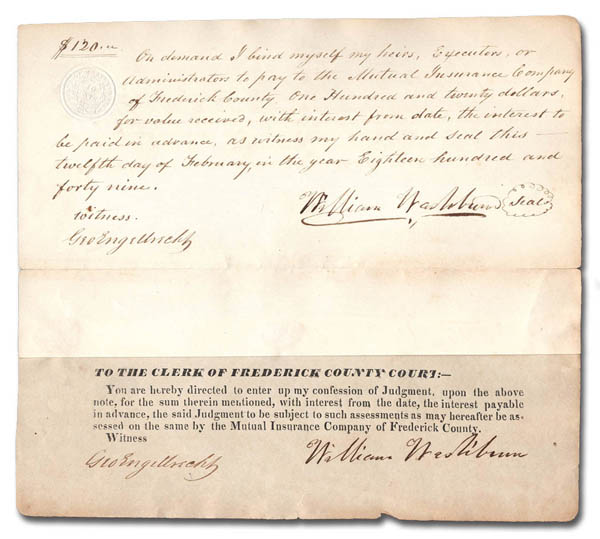 $120.00
On demand I bind myself my heirs, Executors, or
Administrators to pay to the Mutual Insurance Company
of Frederick County One Hundred and twenty dollars,
for value received, with interest from date, the interest to
be paid in advance, as witness my hand and seal this
twelfth day of February, in the year Eighteen hundred and
forty nine.
William Washburn Seal
Witness.
Geo Engelbrecht
TO THE CLERK OF FREDERICK COUNTY COURT:—
You are hereby directed to enter up my confession of Judgment, upon the above
note, for the sum therein mentioned, with interest from the date, the interest payable
in advance, the said Judgment to be subject to such assessments as may hereafter be as-
sessed on the same by the Mutual Insurance Company of Frederick County.
Witness
Geo Engelbrecht William Washburn